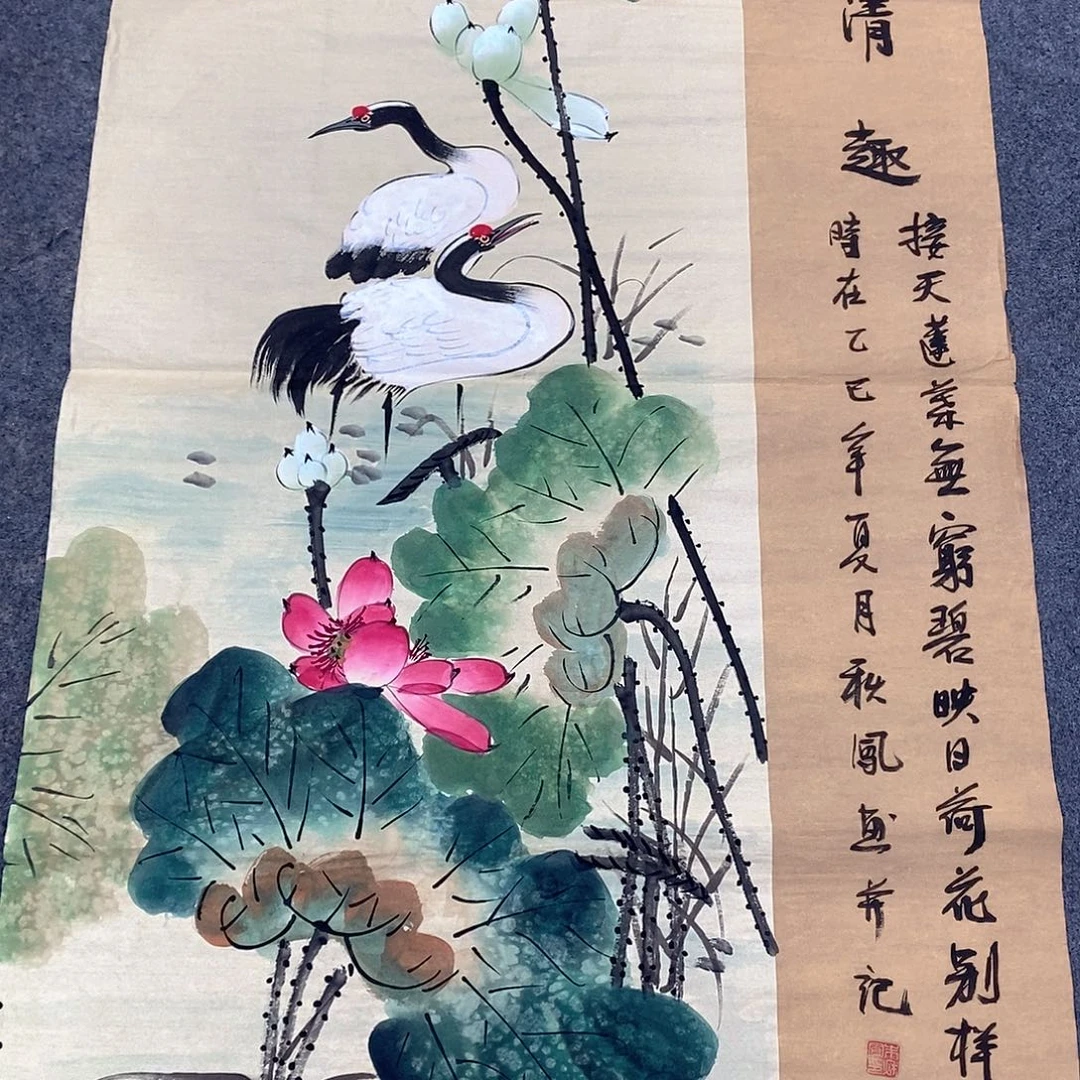 清趣
接天蓮葉無窮碧映日荷花别样
時在乙巳年夏月秋風画并记